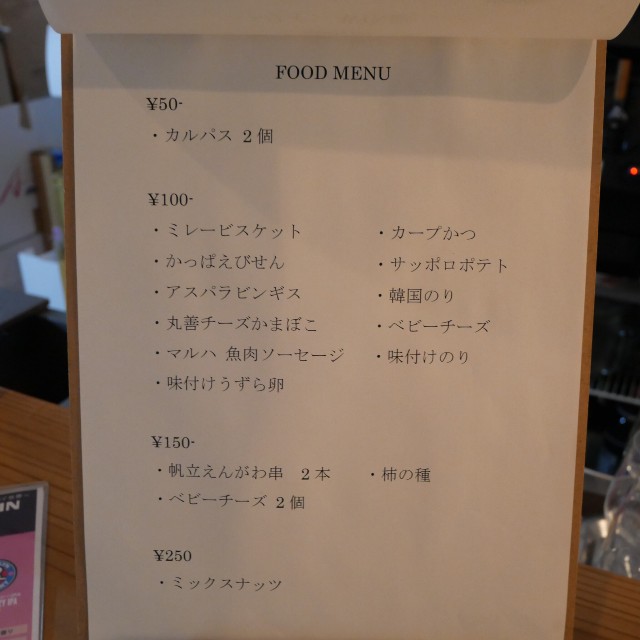 FOOD MENU
¥50-
・カルパス 2個
¥100-
・ミレービスケット ・カープかつ
・かっぱえびせん ・サッポロポテト
・アスパラビンギス ・韓国のり
・丸善チーズかまぼこ ・ベビーチーズ
・マルハ 魚肉ソーセージ ・味付けのり
・味付けうずら卵
¥150-
・帆立えんがわ串 2本 ・柿の種
・ベビーチーズ 2個
¥250
・ミックスナッツ